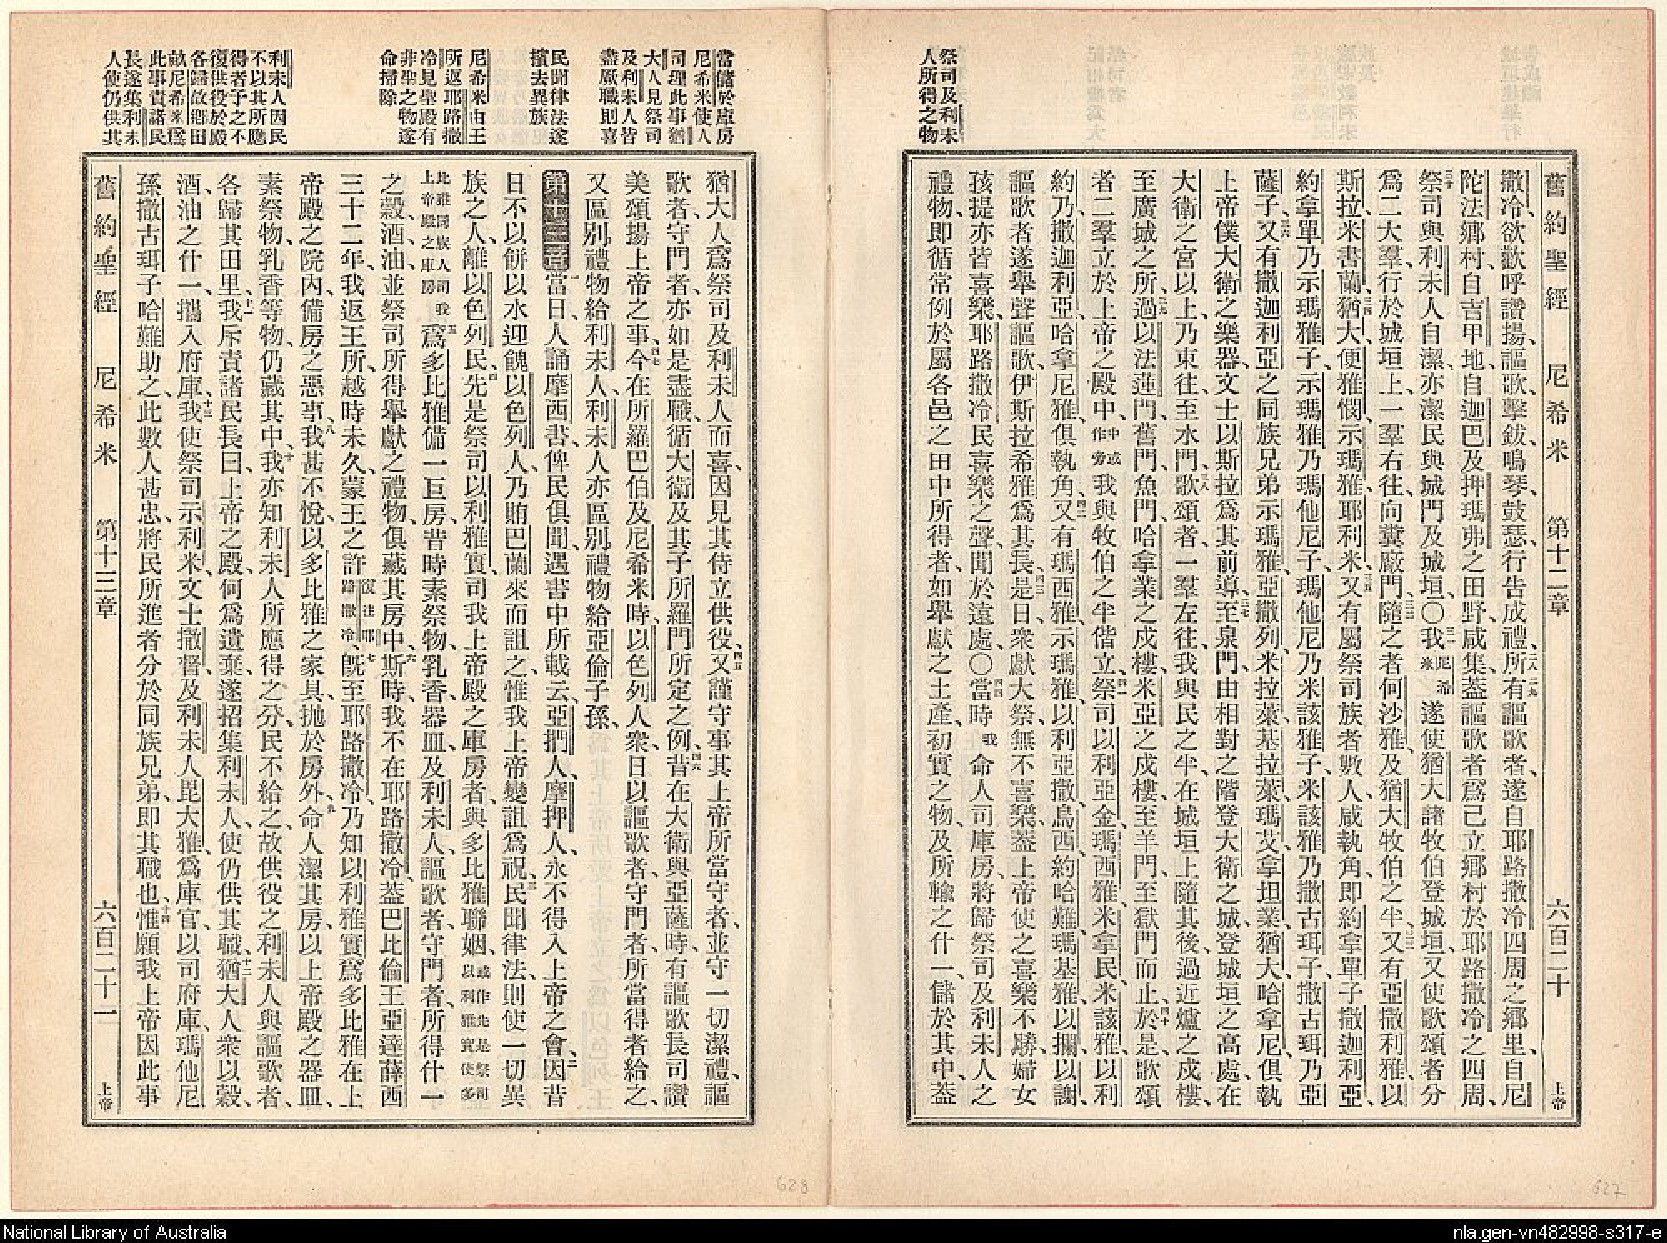 祭司及利未
人所得之物
舊約聖經 尼希米 第十二章 六百二十 上帝
撒冷、欲歡呼讚揚、謳歌、擊鈸、鳴琴、鼓瑟、行告成禮、二八所有二九謳歌者、遂自耶路撒冷四周之鄉里、自尼
陀法鄉村、自吉甲地、自迦巴及押瑪弗之田野、咸集、蓋謳歌者爲己立鄉村於耶路撒冷之四周、
三十祭司與利未人自潔、亦潔民與城門及城垣、〇三一我尼希米遂使猶大諸牧伯登城垣、又使歌頌者分
爲二大羣、行於城垣上、一羣右往、向糞廠門、三二隨之者、何沙雅及猶大牧伯之半、三三又有亞撒利雅、以
斯拉、米書蘭、三四猶大、便雅憫、示瑪雅、耶利米、三五又有屬祭司族者數人、咸執角、即約拿單子撒迦利亞、
約拿單乃示瑪雅子、示瑪雅乃瑪他尼子、瑪他尼乃米該雅子、米該雅乃撒古珥子、撒古珥乃亞
薩子、三六又有撒迦利亞之同族兄弟示瑪雅、亞撒列、米拉萊、基拉萊、瑪艾、拿坦業、猶大、哈拿尼、俱執
上帝僕大衛之樂器、文士以斯拉爲其前導、三七至泉門、由相對之階、登大衛之城、登城垣之高處、在
大衛之宮以上、乃東往、至水門、三八歌頌者一羣左往、我與民之半、在城垣上隨其後、過近爐之戍樓、
至廣城之所、三九過以法蓮門、舊門、魚門、哈拿業之戍樓、米亞之戍樓、至羊門、至獄門而止、四十於是歌頌
者二羣、立於上帝之殿中、中或作旁我與牧伯之半偕立、四一祭司以利亞金、瑪西雅、米拿民、米該雅、以利
約乃、撒迦利亞、哈拿尼雅、俱執角、四二又有瑪西雅、示瑪雅、以利亞撒、烏西、約哈難、瑪基雅、以攔、以謝、
謳歌者遂舉聲謳歌、伊斯拉希雅爲其長、四三是日、衆獻大祭、無不喜樂、蓋上帝使之喜樂不勝、婦女
孩提亦皆喜樂、耶路撒冷民喜樂之聲、聞於遠處、〇四四當時我命人司庫房、將歸祭司及利未人之
禮物、即循常例於屬各邑之田中所得者、如舉獻之土產、初實之物、及所輸之什一、儲於其中、蓋
當儲於庫房
尼希米使人
司理此事猶
大人見祭司
及利未人皆
盡厥職則喜
民聞律法遂
擯去異族
尼希米由王
所返耶路撒
冷見聖殿有
非聖之物遂
命掃除
利未人因民
不以其所應
得者予之不
復供役於殿
各歸故鄉田
畝尼希米爲
此事責諸民
長遂集利未
人使仍供其
猶大人爲祭司及利未人而喜、因見其侍立供役、四五又謹守事其上帝所當守者、並守一切潔禮、謳
歌者、守門者、亦如是盡職、循大衛及其子所羅門所定之例、四六昔在大衛與亞薩時、有謳歌長、司讚
美頌揚上帝之事、四七今在所羅巴伯及尼希米時、以色列人衆、日以謳歌者、守門者所當得者給之、
又區別禮物給利未人、利未人亦區別禮物給亞倫子孫、
第十三章一當日人誦摩西書、俾民俱聞、遇書中所載云、亞捫人、摩押人、永不得入上帝之會、二因昔
日不以餅以水迎餽以色列人、乃賄巴蘭來而詛之、惟我上帝變詛爲祝、三民聞律法、則使一切異
族之人、離以色列民、四先是祭司以利雅實、司我上帝殿之庫房者、與多比雅聯姻、或作先是祭司以利雅實使多
比雅同族人司我上帝殿之庫房五爲多比雅備一巨房、昔時素祭物、乳香、器皿、及利未人、謳歌者、守門者、所得什一
之穀、酒、油、並祭司所得舉獻之禮物、俱藏其房中、六斯時我不在耶路撒冷、蓋巴比倫王亞達薛西
三十二年、我返王所、越時未久、蒙王之許、復往耶路撒冷、七旣至耶路撒冷、乃知以利雅實爲多比雅在上
帝殿之院內、備房之惡事、八我甚不悅、以多比雅之家具、拋於房外、九命人潔其房、以上帝殿之器皿、
素祭物、乳香等物、仍藏其中、十我亦知利未人所應得之分、民不給之、故供役之利未人與謳歌者、
各歸其田里、十一我斥責諸民長曰、上帝之殿、何爲遺棄、遂招集利未人、使仍供其職、十二猶大人衆、以穀、
酒、油之什一、攜入府庫、十三我使祭司示利米、文士撒督、及利未人毘大雅、爲庫官、以司府庫、瑪他尼
孫、撒古珥子哈難助之、此數人甚忠、將民所進者、分於同族兄弟、即其職也、十四惟願我上帝因此事
舊約聖經 尼希米 第十三章 六百二十一 上帝
628
627
National Library of Australia
nla.gen-vn482998-s317-e